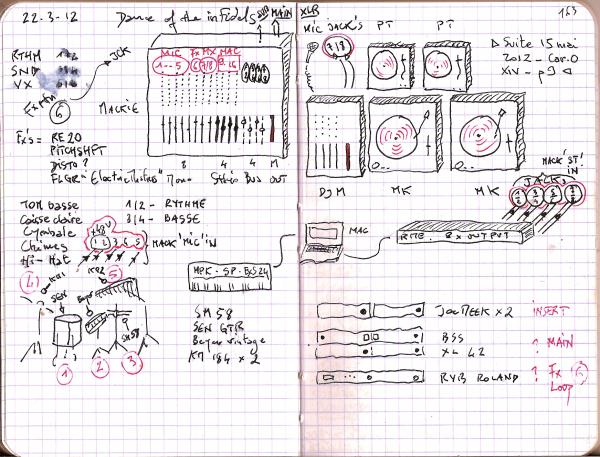 22-3-12 Dance of the infidels SUB MAIN
RTHM 1-2
SND
VX
JCK
6
MACKIE
MIC FX MX MAC
1-5 6 7/8
8 4 4 M
Mono Stéréo Bus OUT
FXS = RE20
PITCHSHFT
DISTO?
FLGR "Electric Mistress"
TOM basse 1/2 - RYTHME
Caisse claire 3/4 - BASSE
Cymbale +48V
Chimes 1 2 3 4 5 MACK'MIC'IN
Hi-Hat
4 KM1 KM2 5
SEN Beyer SM58
1 2 3
MPK - SP - BXS24
SM58
SEN GTR
Beyer vintage
KM 184 x 2
163
XLR
MIC JACK'S PT PT
7/8
▷ Suite 15 mai
2012 - Car.O
XIV - p9 ◁
DJM MK MK
MACK'ST!
IN
JACK'S
MAC
RME 8 x OUTPUT
JOEMEEK x2 INSERT
BSS ↑ MAIN
XL 42
RVB ROLAND ↑ Fx 6
Loop